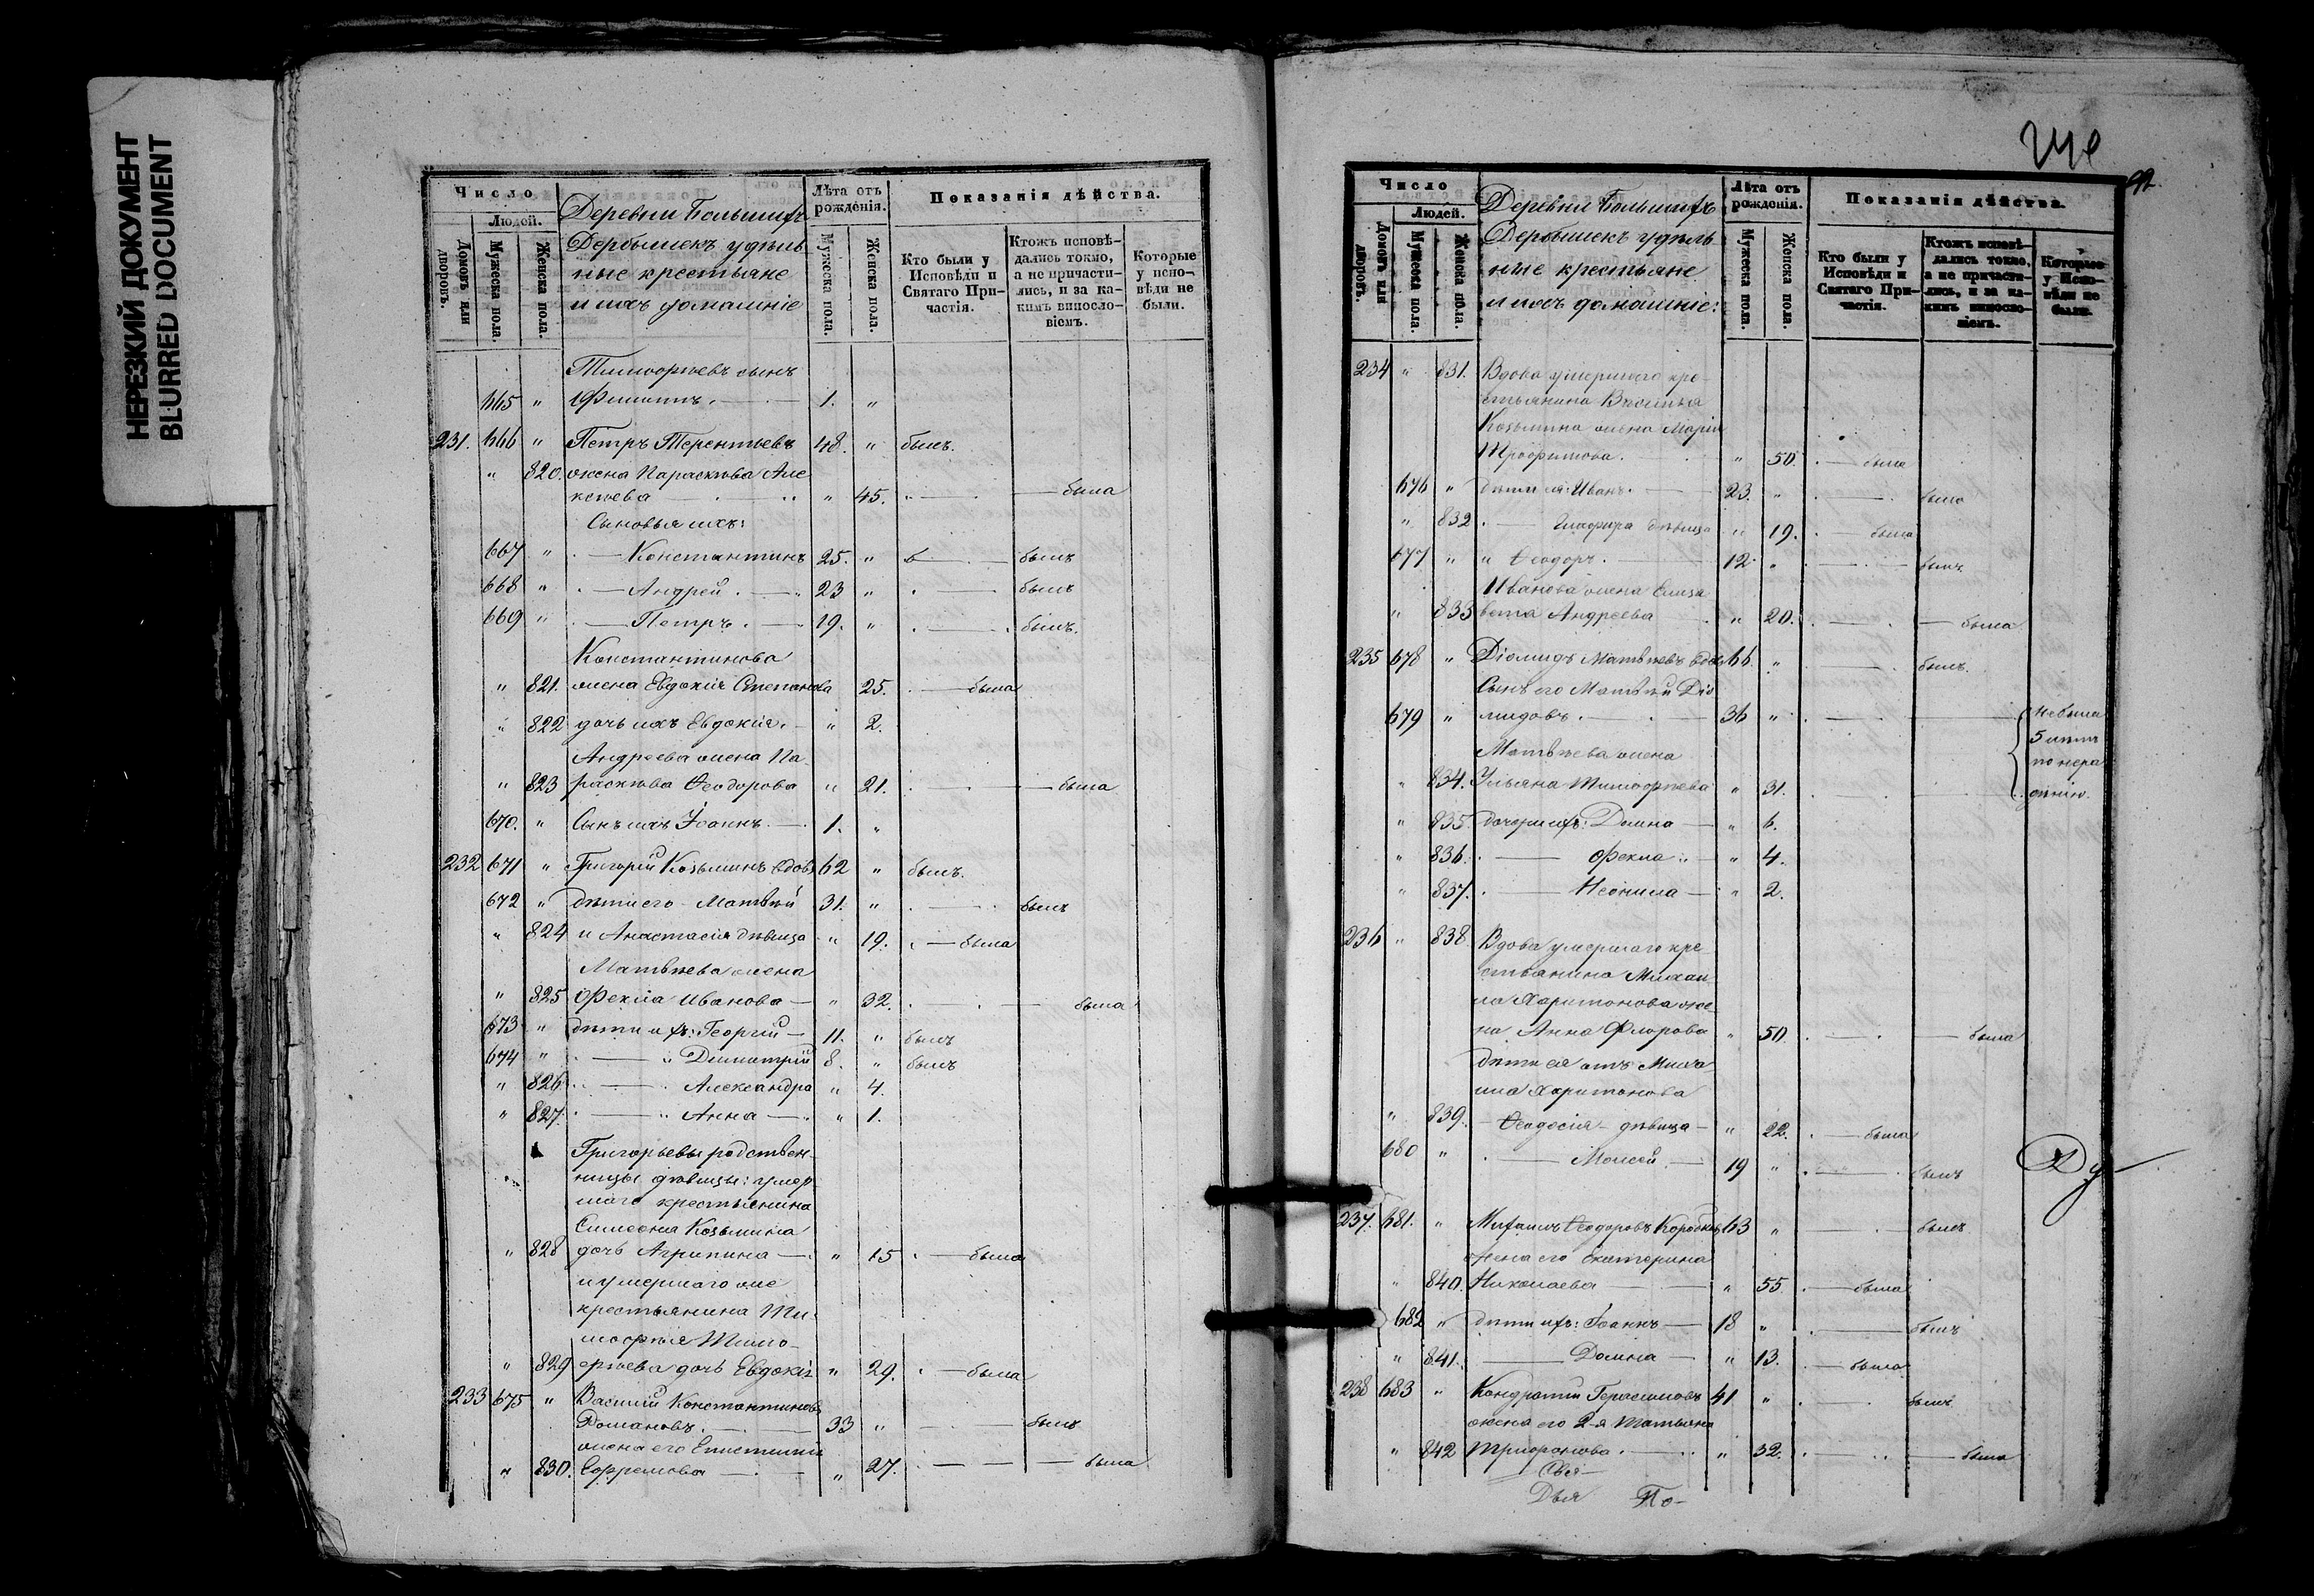 НЕРЕЗКИЙ ДОКУМЕНТ
BLURRED DOCUMENT
Число
Людей.
Домовъ или дворовъ.
Мужеска пола.
Женска пола.
Деревни Большихъ
Дербышекъ удѣль
ные крестьяне
и ихъ домашніе
Лѣта отъ рожденія.
Мужеска пола.
Женска пола.
Показанія дѣйства.
Кто были у Исповѣди и Святаго Причастія.
Ктожъ исповѣдались токмо, а не причастились, и за какимъ винословіемъ.
Которые у исповѣди не были.
Тимоѳеевъ сынъ
665 " Филиппъ. 1. "
231. 666 " Петръ Терентьевъ 48. " былъ.
" 820. жена Параскѣва Але
ксѣева " 45. " была
Сыновья ихъ:
667 " Константинъ 25. " былъ
668 " Андрей 23 " былъ
669 " Петръ. 19. " былъ.
Константинова
" 821. жена Евдокія Степанова 25. была
" 822 дочь ихъ Евдокія. " 2.
Андреева жена Па
" 823 раскѣва Ѳеодорова " 21. была
670. " Сынъ ихъ Іоаннъ 1. "
232 671 " Григорій Козьминъ вдовъ 62 " былъ.
672 " дѣти его Матвѣй 31. " былъ
" 824 и Анастасія дѣвица " 19. была
Матвѣева жена
" 825 Ѳекла Иванова " 32. была
673 " дѣти ихъ: Георгій 11. " былъ
674 " " Димитрій 8. " былъ
" 826 Александра " 4.
" 827. " Анна " 1.
Григорьевы родствен
ницы дѣвицы: умер
шаго крестьянина
Симеона Козьмина
" 828 дочь Агрипина " 15 была
и умершаго же
крестьянина Ти
моѳея Тимо
" 829 ѳеева дочь Евдокія " 29. была
233 675 " Василій Константиновъ
Романовъ. 33 " былъ
жена его Епистимія
" 830. Ефремова " 27. была
92.
Число
Людей.
Домовъ или дворовъ.
Мужеска пола.
Женска пола.
Деревни Большихъ
Дербышекъ удѣль
ные крестьяне
и ихъ домашніе:
Лѣта отъ рожденія.
Мужеска пола.
Женска пола.
Показанія дѣйства.
Кто были у Исповѣди и Святаго Причастія.
Ктожъ исповѣдались токмо, а не причастились, и за какимъ винословіемъ.
Которые у Исповѣди не были.
234 " 831. Вдова умершаго кре
стьянина Василья
Козьмина жена Марія
Трофимова. " 50. была
676 " дѣти ея: Иванъ. 23. " былъ
" 832 Глафира дѣвица " 19. была
677 " " Ѳеодоръ. 12. " былъ
Иванова жена Елиза
" 833 вета Андреева " 20. была
235 678 " Діомидъ Матвѣевъ вдовъ 66. " былъ.
Сынъ его Матвѣй Діо
679 " мидовъ. 36 " не были
5 лѣтъ
по нера
дѣнію.
Матвѣева жена
" 834. Ульяна Тимоѳеева " 31.
" 835. дочери ихъ: Домна " 6.
" 836. Ѳекла " 4.
" 837. Неонила " 2.
236 " 838. Вдова умершаго кре
стьянина Михаи
ла Харитонова же
на Анна Флорова " 50. была
дѣти ея отъ Миха
ила Харитонова
" 839. Ѳеодосія дѣвица " 22. была
680 " Моисей 19 " былъ
237. 681. " Михаилъ Ѳеодоровъ Коробковъ 63 " былъ
жена его Екатерина
" 840. Николаева " 55 была
682 " дѣти ихъ: Іоаннъ 18 " былъ
" 841. Домна " 13. была
238 683 " Кондратій Герасимовъ 41 " былъ
жена его 2-я Татьяна
" 842 Трифонова " 32. была
По-